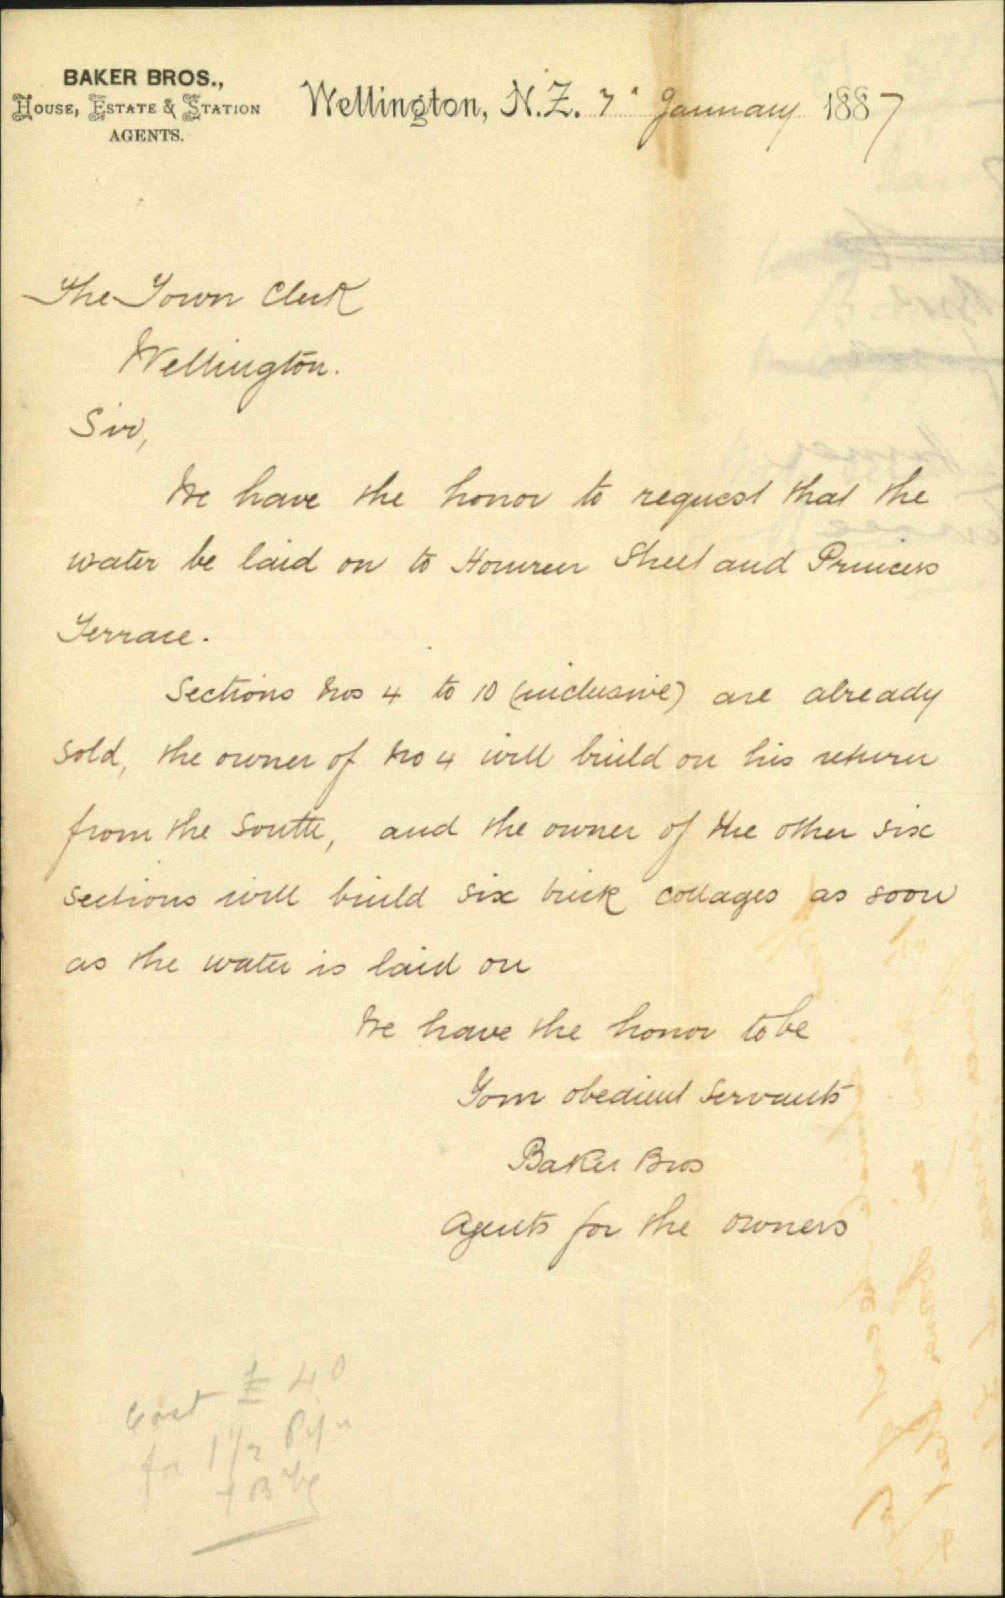 BAKER BROS.,
HOUSE, ESTATE & STATION
AGENTS.
Wellington, N.Z. 7" January 1887
The Town Clerk
Wellington.
Sir,
We have the honor to request that the
water be laid on to Street and Princess
Terrace.
Sections Nos 4 to 10 (inclusive) are already
sold, the owner of No 4 will build on his return
from the South, and the owner of the other six
sections will build six brick cottages as soon
as the water is laid on
We have the honor to be
Your obedient servants
Baker Bros
Agents for the owners
Cost £40
for 1 1/2